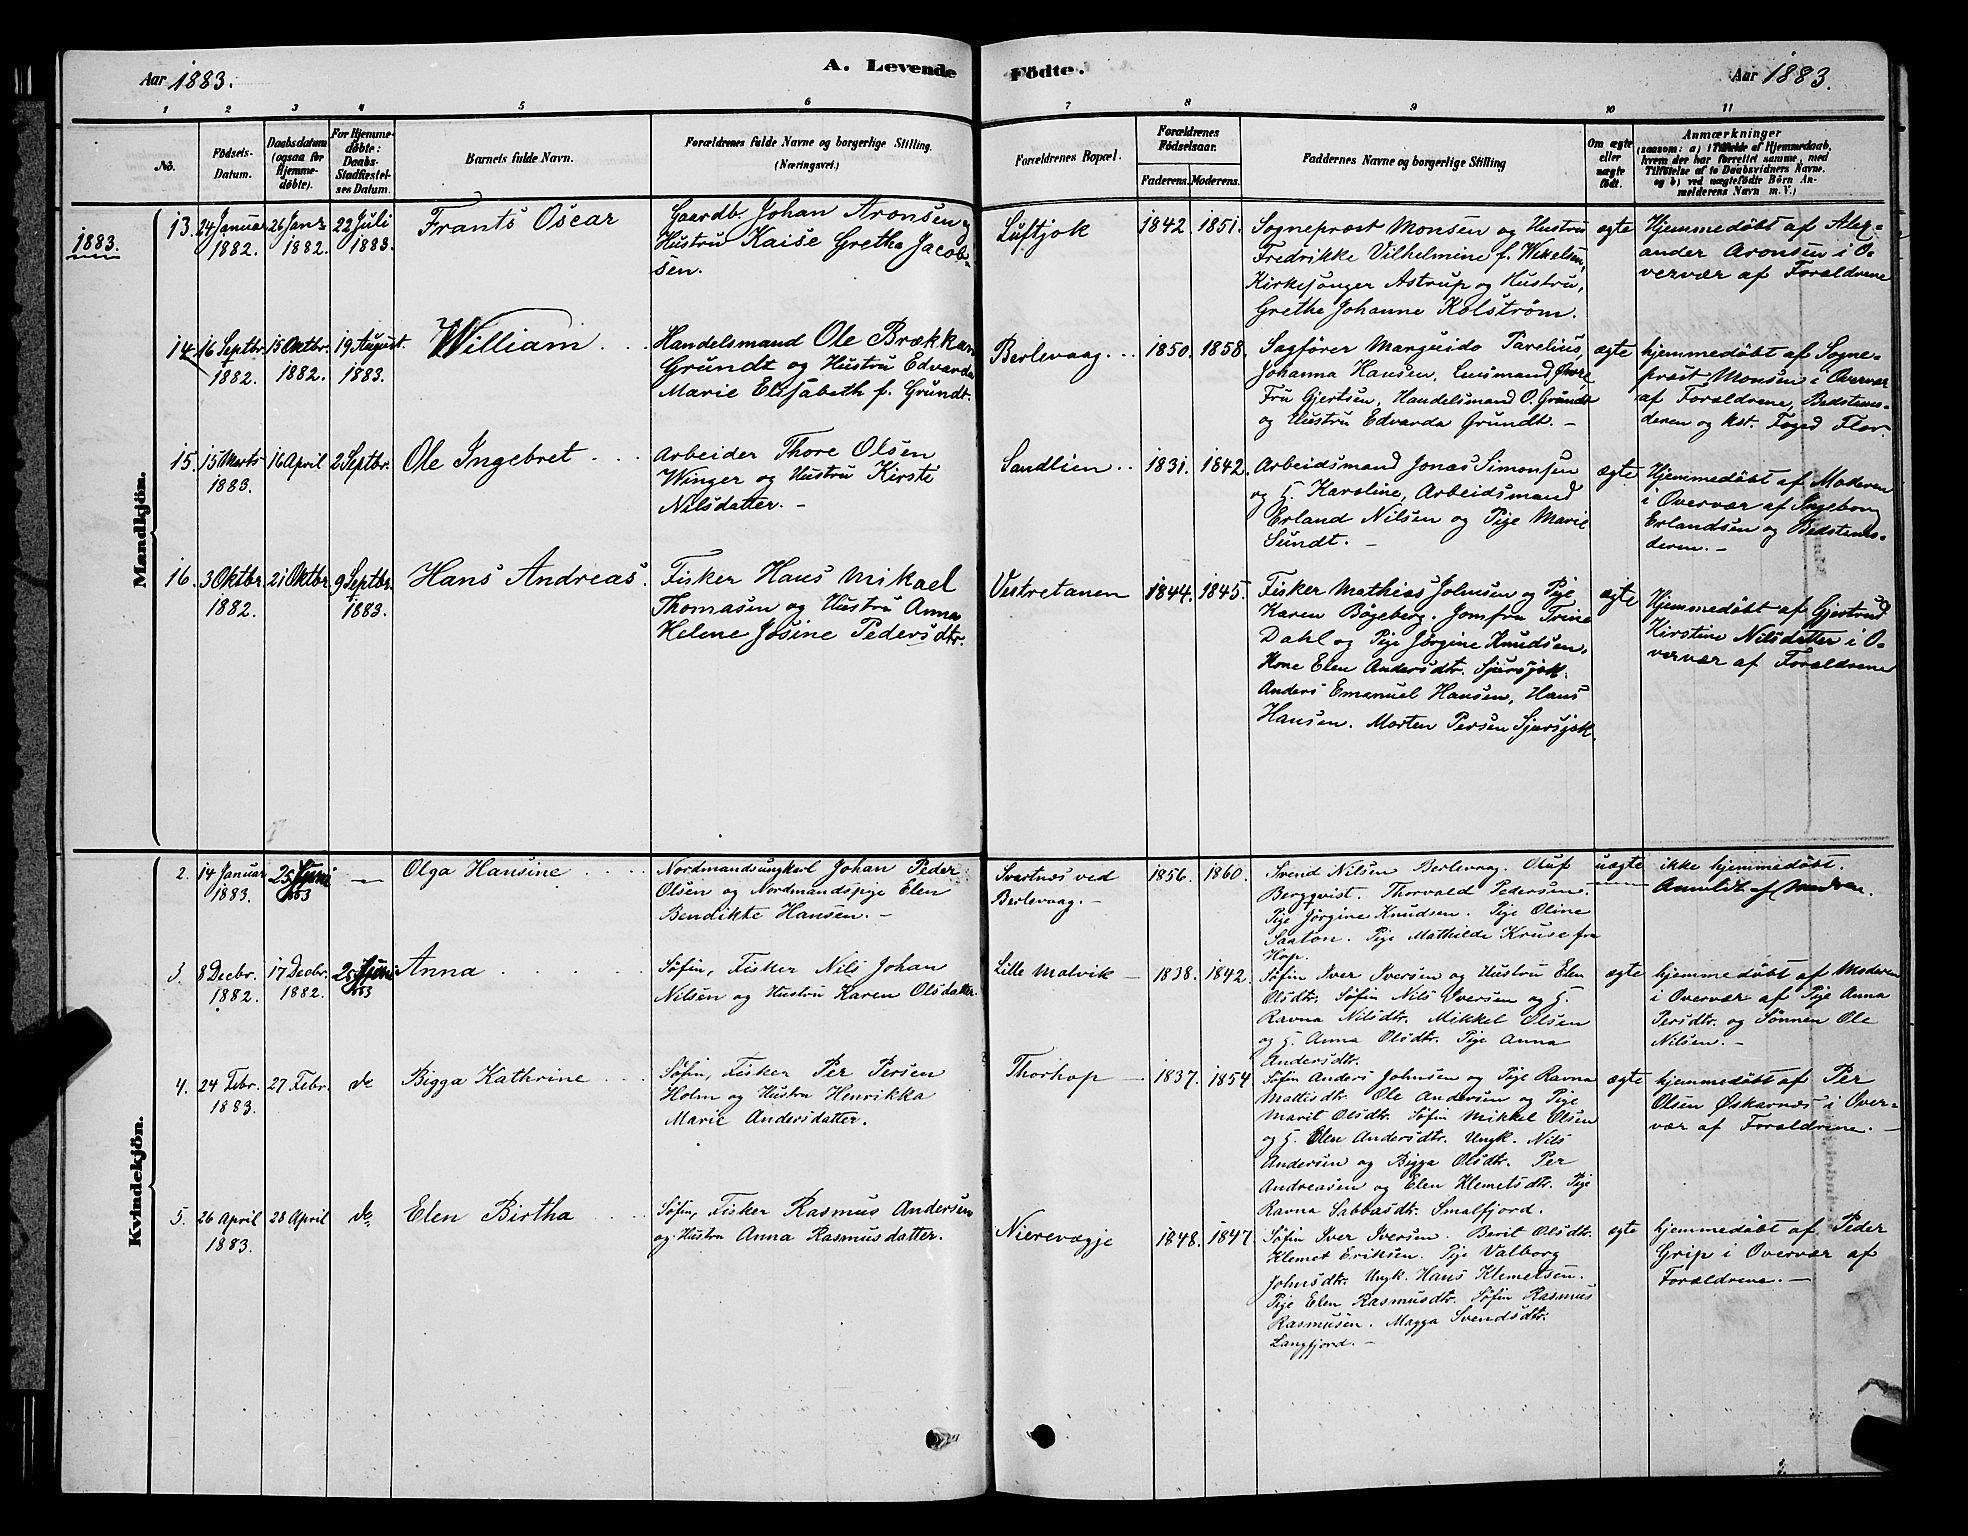 A. Levende
Aar 1883.
1 2 3 4 5 6
No.
Födsels-
Datum.
Daabsdatum
(ogsaa for
Hjemme-
döbte).
For Hjemme-
döbte:
Daabs-
Stadfæstel-
ses Datum.
Barnets fulde Navn.
Forældrenes fulde Navne og borgerlige Stilling.
(Næringsvei.)
1883.
Mandkjön.
13. 24 Januar 26 Janr 22 Juli Frants Oscar Gaardb. Johan Aronsen og
1882. 1882. 1883. Hustru Kaise Gretha Jacob-
sen.
14. 16 Septbr. 15 Oktbr. 19 August. William Handelsmand Ole Brækkan
1882. 1882. 1883. Grundt og Hustru Edvarda
Marie Elisabeth f. Grundt.
15. 15 Marts 16 April 2 Septbr. Ole Ingebret Arbeider Thore Olsen
1883. Winger og Hustru Kirste
Nilsdatter. –
16. 3 Oktbr. 21 Oktbr. 9 Septbr. Hans Andreas. Fisker Hans Mikael
1882. 1883. Thomasen og Hustru Anna
Helene Josine Pedersdtr.
Kvindekjön.
2. 14 Januar 25 Juni — Olga Hansine Nordmandsungkarl Johan Peder
1883. 1883 Olsen og Nordmandspige Elen
Bendikte Hansen. –
3. 8 Decbr. 17 Decbr. 25 Juni Anna Søfin, Fisker Nils Johan
1882. 1882. 1883 Nilsen og Hustru Karen Olsdatter.
4. 24 Febr. 27 Febr. do Bigga Kathrine Søfin, Fisker Per Persen
1883. Holm og Hustru Henrikka
Marie Andersdatter.
5. 26 April 28 April do. Elen Birtha Søfin, Fisker Rasmus Andersen
1883. og Hustru Anna Rasmusdatter.
Födte.
Aar 1883.
7 8 9 10 11
Forældrenes Bopæl.
Forældrenes
Födselsaar.
Faderens. Moderens.
Faddernes Navne og borgerlige Stilling
Om ægte
eller
uægte
födt.
Anmærkninger
(saasom: a) i Tilfælde af Hjemmedaab,
hvem der har forrettet samme, med
Tilföielse af to Daabsvidners Navne,
og b) ved uægtefödte Börn An-
melderens Navn m. V.)
Luftjok 1842. 1851. Sogneprest Monsen og Hustru ægte Hjemmedøbt af Alex-
Fredrikke Vilhelmine f. Wekelsen, ander Aronsen i O-
Kirkesanger Astrup og Hustru, vervær af Forældrene
Grethe Johanne Kolstrøm.
Berlevaag. 1850. 1858. Sagfører Marguido Parelius, ægte hjemmedøbt af Sogne-
Johanna Hansen, Lensmand prest Monsen i Overvær
Fru Gjertsen, Handelsmand O. Grundt af Forældrene, Bedstemo-
og Hustru Edvarda Grundt. – deren og kst. Foged Flor.
Sandlien 1831. 1842. Arbeidsmand Jonas Simonsen ægte Hjemmedøbt af Moderen
og H. Karoline, Arbeidsmand i Overvær af Ingeborg
Erland Nilsen og Pige Marie Erlandsen og Bedstemo-
Sundt. – deren. –
Vestretanen 1844. 1845. Fisker Mathias Johnsen og Pige ægte Hjemmedøbt af Gjertrud
Karen Bøgeberg. Jomfru Trine Kirstine Nilsdatter i O-
Dahl og Pige Jørgine Knudsen, vervær af Forældrene
Kone Elen Andersdtr. Sjursjok.
Anders Emanuel Hansen, Hans
Hansen. Morten Persen Sjursjok.
Svartnæs ved 1856. 1860. Svend Nilsen Berlevaag. Oluf uægte ikke hjemmedøbt.
Berlevaag. – Bergqvist. Thorvald Pedersen. Anmeldt af Moderen.
Pige Jørgine Knudsen. Pige Oline
Saaton. Pige Mathilde Kruse fra
Hop.
Lille Malvik — 1838. 1842. Søfin Iver Iversen og Hustru Elen ægte hjemmedøbt af Moderen
Olsdtr. Søfin Nils Iversen og H. i Overvær af Pige Anna
Ravna Nilsdtr. Mikkel Olsen Persdtr. og Sønnen Ole
og H. Anna Olsdtr. Pige Anna Nilsen. –
Andersdtr.
Thorhop — 1837. 1854 Søfin Anders Johnsen og Pige Ravna ægte hjemmedøbt af Per
Mattisdtr. Ole Andersen og Pige Olsen Øskarnæs i Over-
Marit Olsdtr. Søfin Mikkel Olsen vær af Forældrene. –
og H. Elen Andersdtr. Ungk. Nils
Andersen og Bigga Olsdtr. Per
Andreasen og Elen Klemetsdtr. Pige
Ravna Sabbasdtr. Smalfjord.
Nierevægje 1848. 1847. Søfin Iver Iversen. Berit Olsdtr. ægte hjemmedøbt af Peder
Klemet Eriksen. Pige Valborg Grip i Overvær af
Johnsdtr. Ungk. Hans Klemetsen. Forældrene. –
Pige Elen Rasmusdtr. Søfin Rasmus
Rasmusen. Magga Svendsdtr.
Langfjord. –